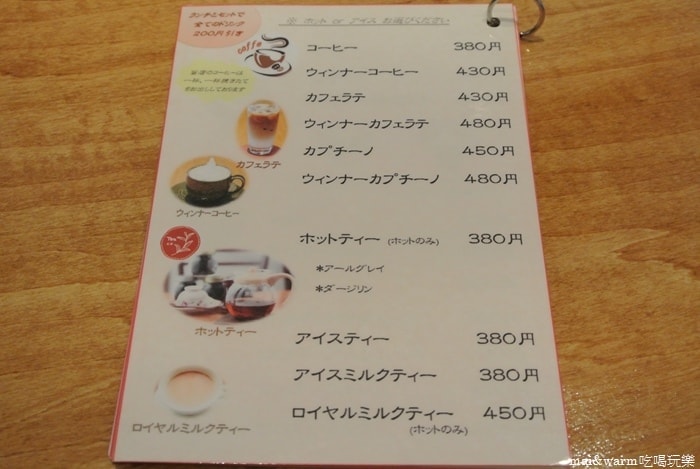 ランチとセットで
全てのドリンク
200円引き
※ ホット or アイス お選びください
coffe
コーヒー 380円
ウィンナーコーヒー 430円
当店のコーヒーは
一杯、一杯挽きたて
をお出ししております
カフェラテ 430円
ウィンナーカフェラテ 480円
カプチーノ 450円
カフェラテ
ウィンナーカプチーノ 480円
ウィンナーコーヒー
ホットティー (ホットのみ) 380円
*アールグレイ
*ダージリン
ホットティー
アイスティー 380円
アイスミルクティー 380円
ロイヤルミルクティー 450円
(ホットのみ)
ロイヤルミルクティー
mai&warm吃喝玩樂